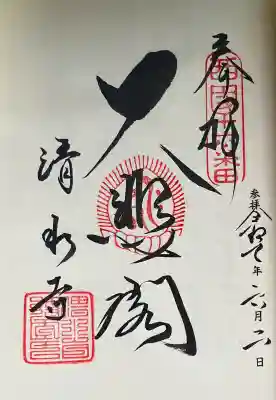 奉拝
参拝 令和七年 六月二日
大悲閣
清水寺